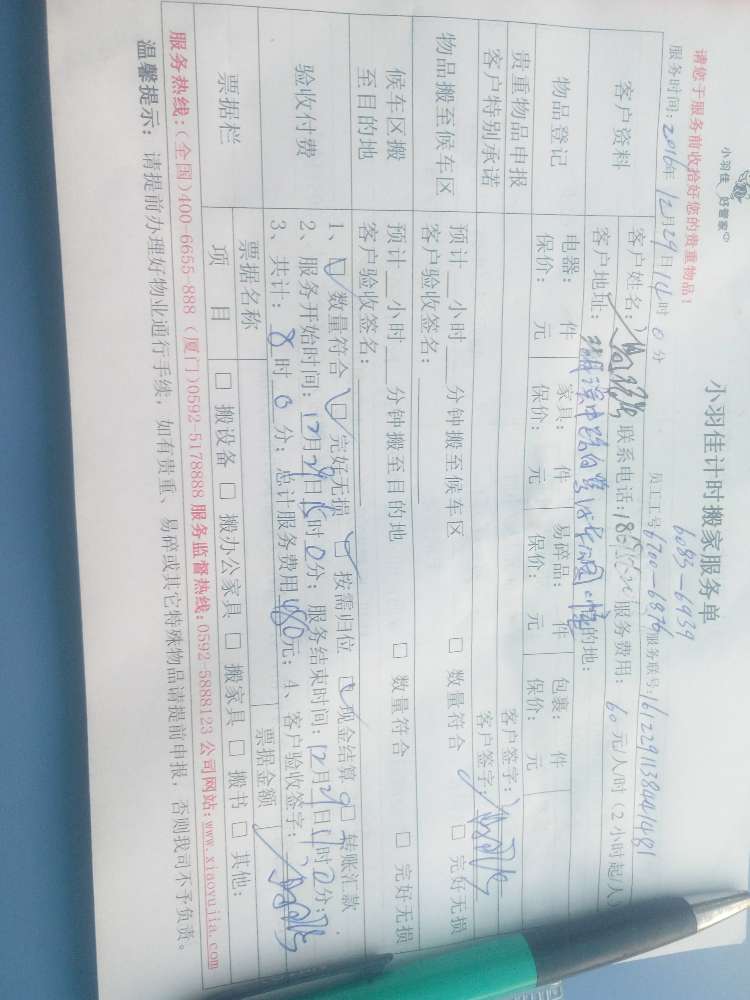 小羽佳 好管家
小羽佳计时搬家服务单
6083-6939
请您于服务前收拾好您的贵重物品！
员工工号6700-6876 服务联号：1612291138441481
服务时间：2016年12月29日14时0分
客户资料 客户姓名： 联系电话：18 服务费用：60元/人/时（2小时起/人）
客户地址： 目的地：
物品登记 电器： 件 家具： 件 易碎品： 件 包裹： 件
保价： 元 保价： 元 保价： 元 保价： 元
贵重物品申报 客户签字：
客户特别承诺 客户签字：
物品搬至候车区 预计__小时__分钟搬至候车区 □ 数量符合 □ 完好无损
客户验收签名：
候车区搬至目的地 预计__小时__分钟搬至目的地 □ 数量符合 □ 完好无损
客户验收签名：
验收付费 1、☑ 数量符合 ☑ 完好无损 ☑ 按需归位 ☑ 现金结算 □ 转账汇款
2、服务开始时间：12月29日15时0分；服务结束时间：12月29日 时 分；
3、共计：8时0分；总计服务费用480元；4、客户验收签字：
票据栏 票据名称 票据金额
项目 □ 搬设备 □ 搬办公家具 □ 搬家具 □ 搬书 □ 其他：
服务热线：（全国）400-6655-888 （厦门）0592-5178888 服务监督热线：0592-5888123 公司网站：www.xiaoyujia.com
温馨提示：请提前办理好物业通行手续，如有贵重、易碎或其它特殊物品请提前申报，否则我司不予负责。